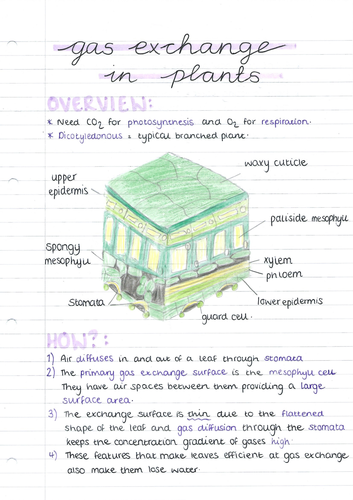 gas exchange
in plants
OVERVIEW:
* Need CO₂ for photosynthesis and O₂ for respiration.
* Dicotyledonous = typical branched plant.
waxy cuticle
upper
epidermis
paliside mesophyll
Spongy
mesophyll
xylem
phloem
Stomata
lower epidermis
guard cell.
HOW?:
1) Air diffuses in and out of a leaf through stomata
2) The primary gas exchange surface is the mesophyll cell
They have air spaces between them providing a large
surface area.
3) The exchange surface is thin due to the flattened
shape of the leaf and gas diffusion through the stomata
keeps the concentration gradient of gases high
4) These features that make leaves efficient at gas exchange
also make them lose water.